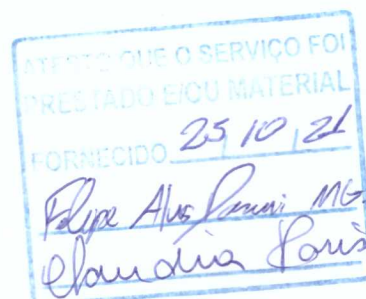 ATESTO QUE O SERVIÇO FOI
PRESTADO E/OU MATERIAL
FORNECIDO 25/10/21
Felipe Alves MG
Claudia